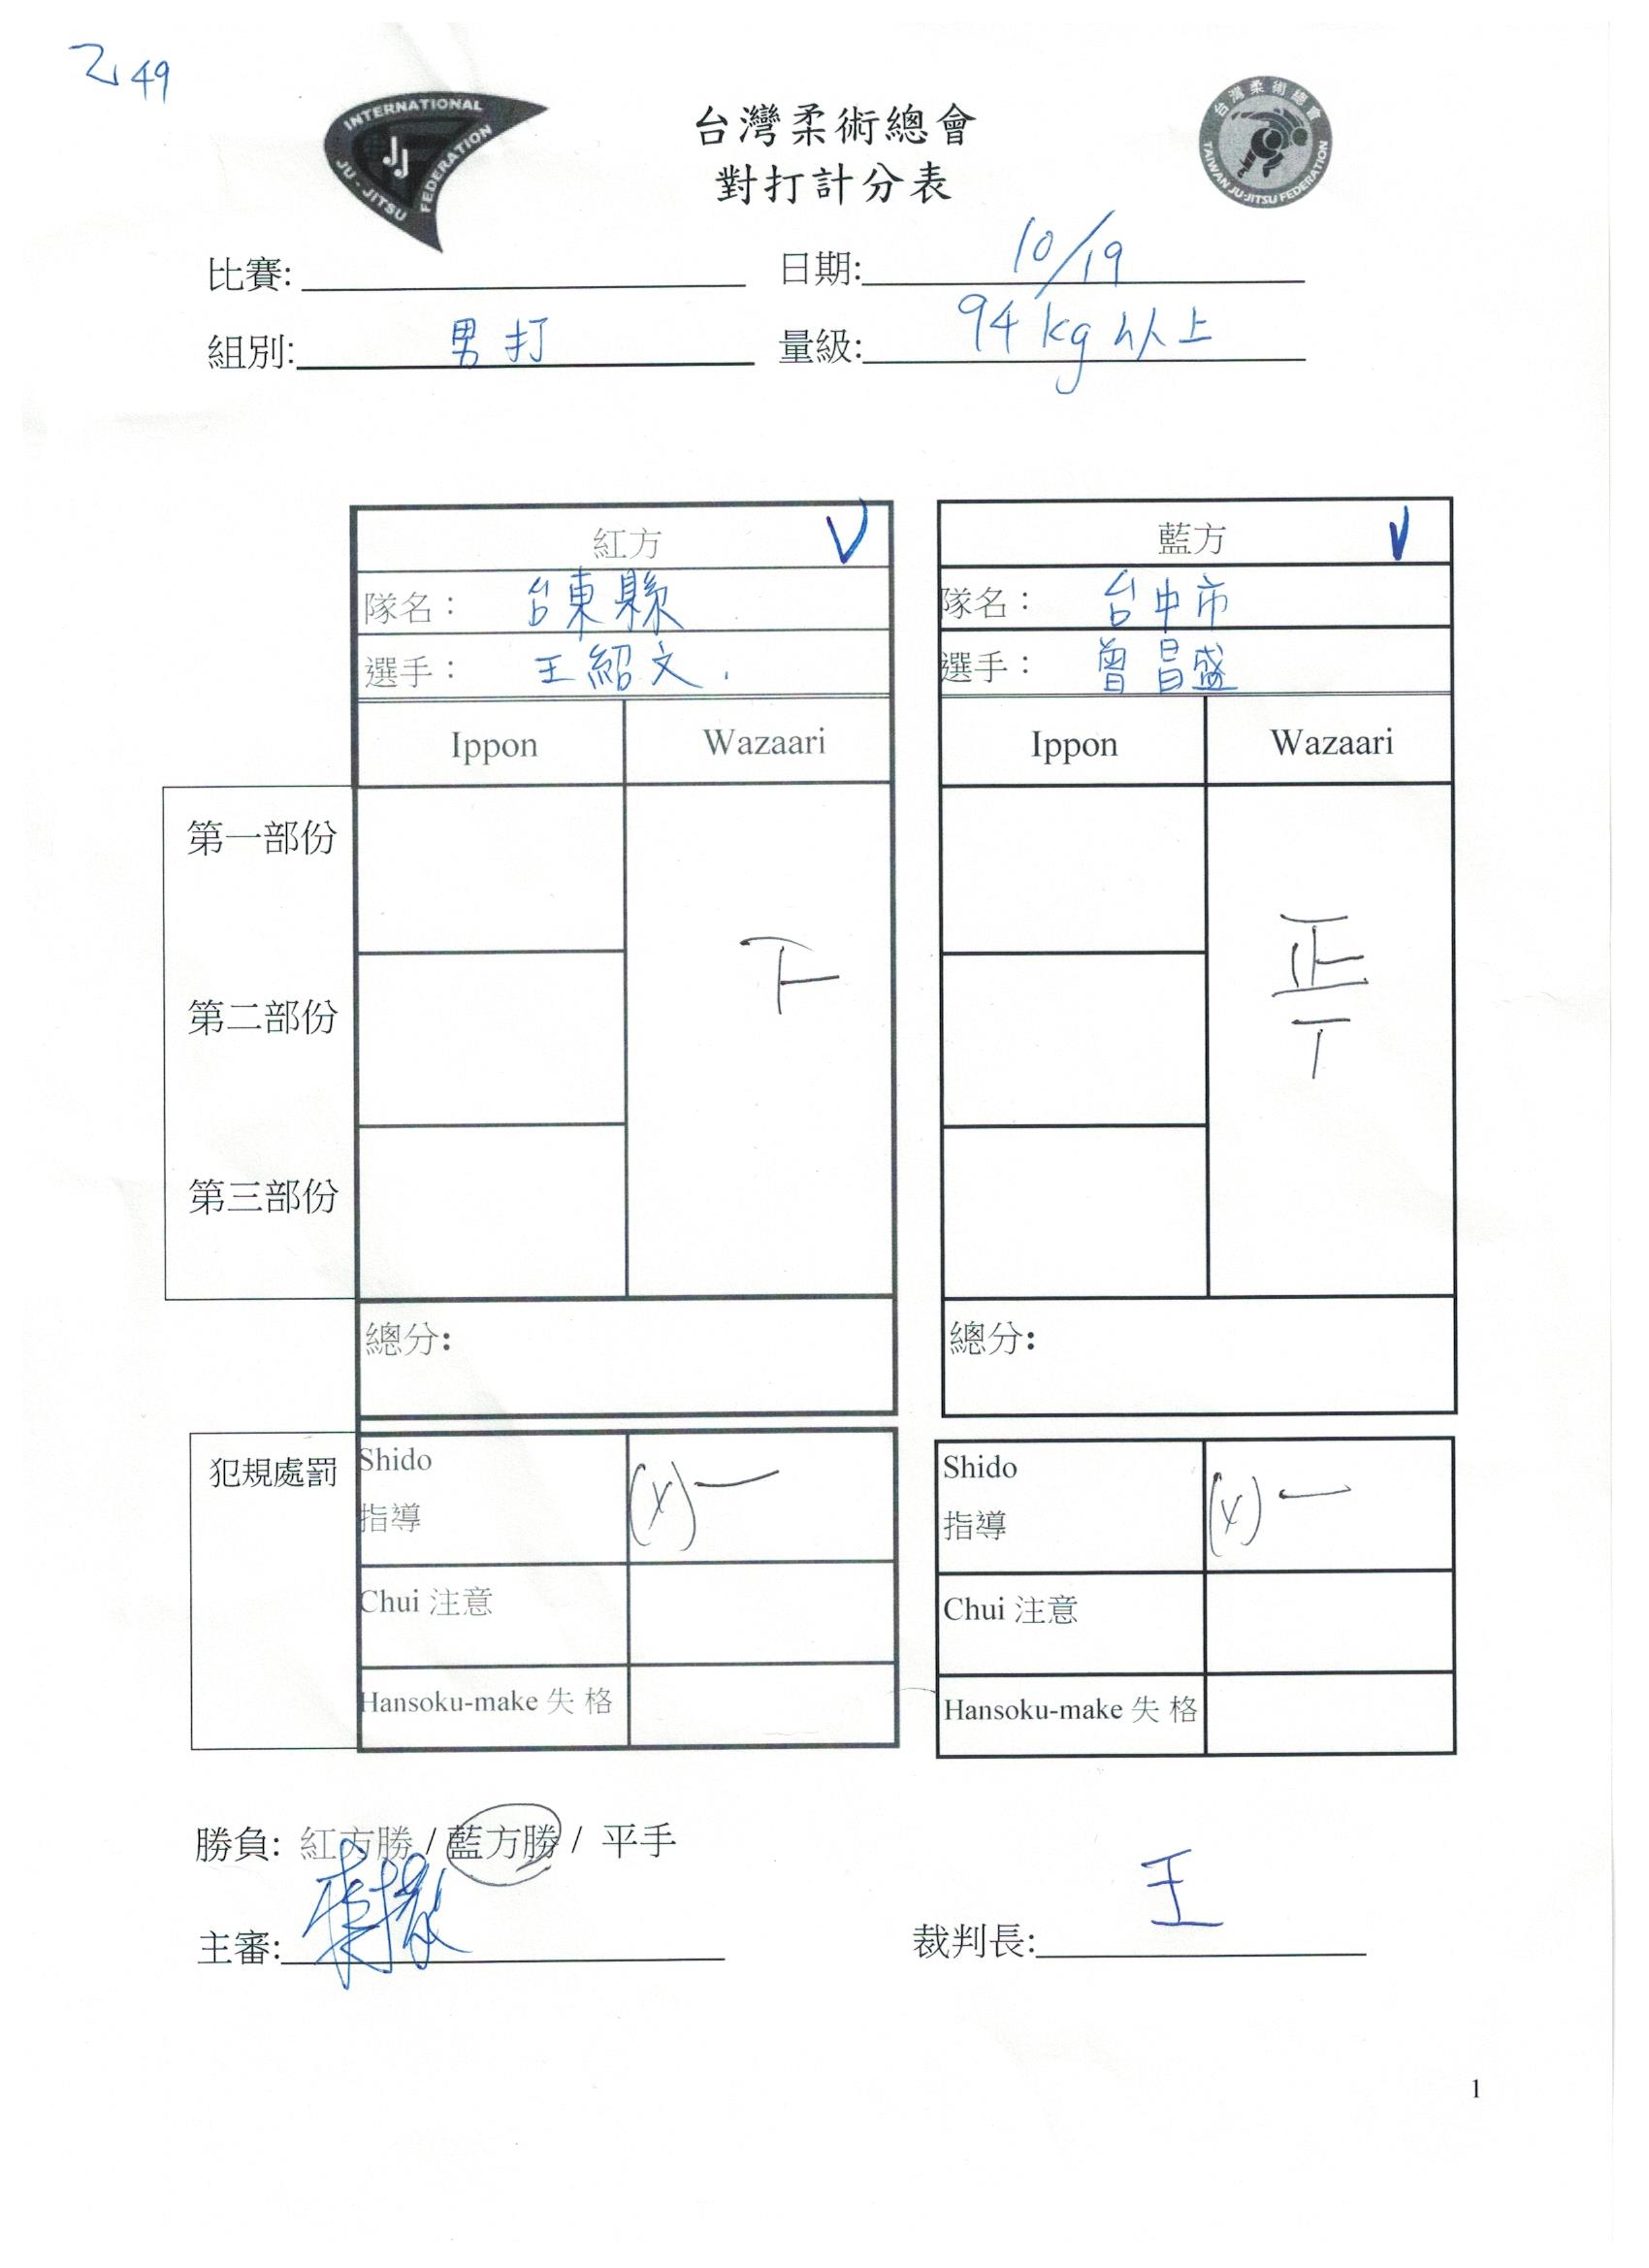 乙49
INTERNATIONAL
JU-JITSU
FEDERATION
JJ
台灣柔術總會
對打計分表
台灣柔術總會
TAIWAN JU-JITSU FEDERATION
比賽: 日期: 10/19
組別: 男打 量級: 94 kg 以上
紅方 V 藍方 V
隊名： 台東縣 隊名： 台中市
選手： 王紹文. 選手： 曾昌盛
Ippon Wazaari Ippon Wazaari
第一部份
第二部份 下 正丅
第三部份
總分: 總分:
犯規處罰 Shido 指導 (x) 一 Shido 指導 (x) 一
Chui 注意 Chui 注意
Hansoku-make 失 格 Hansoku-make 失 格
勝負: 紅方勝 / 藍方勝 / 平手
主審: 裁判長: 王
1